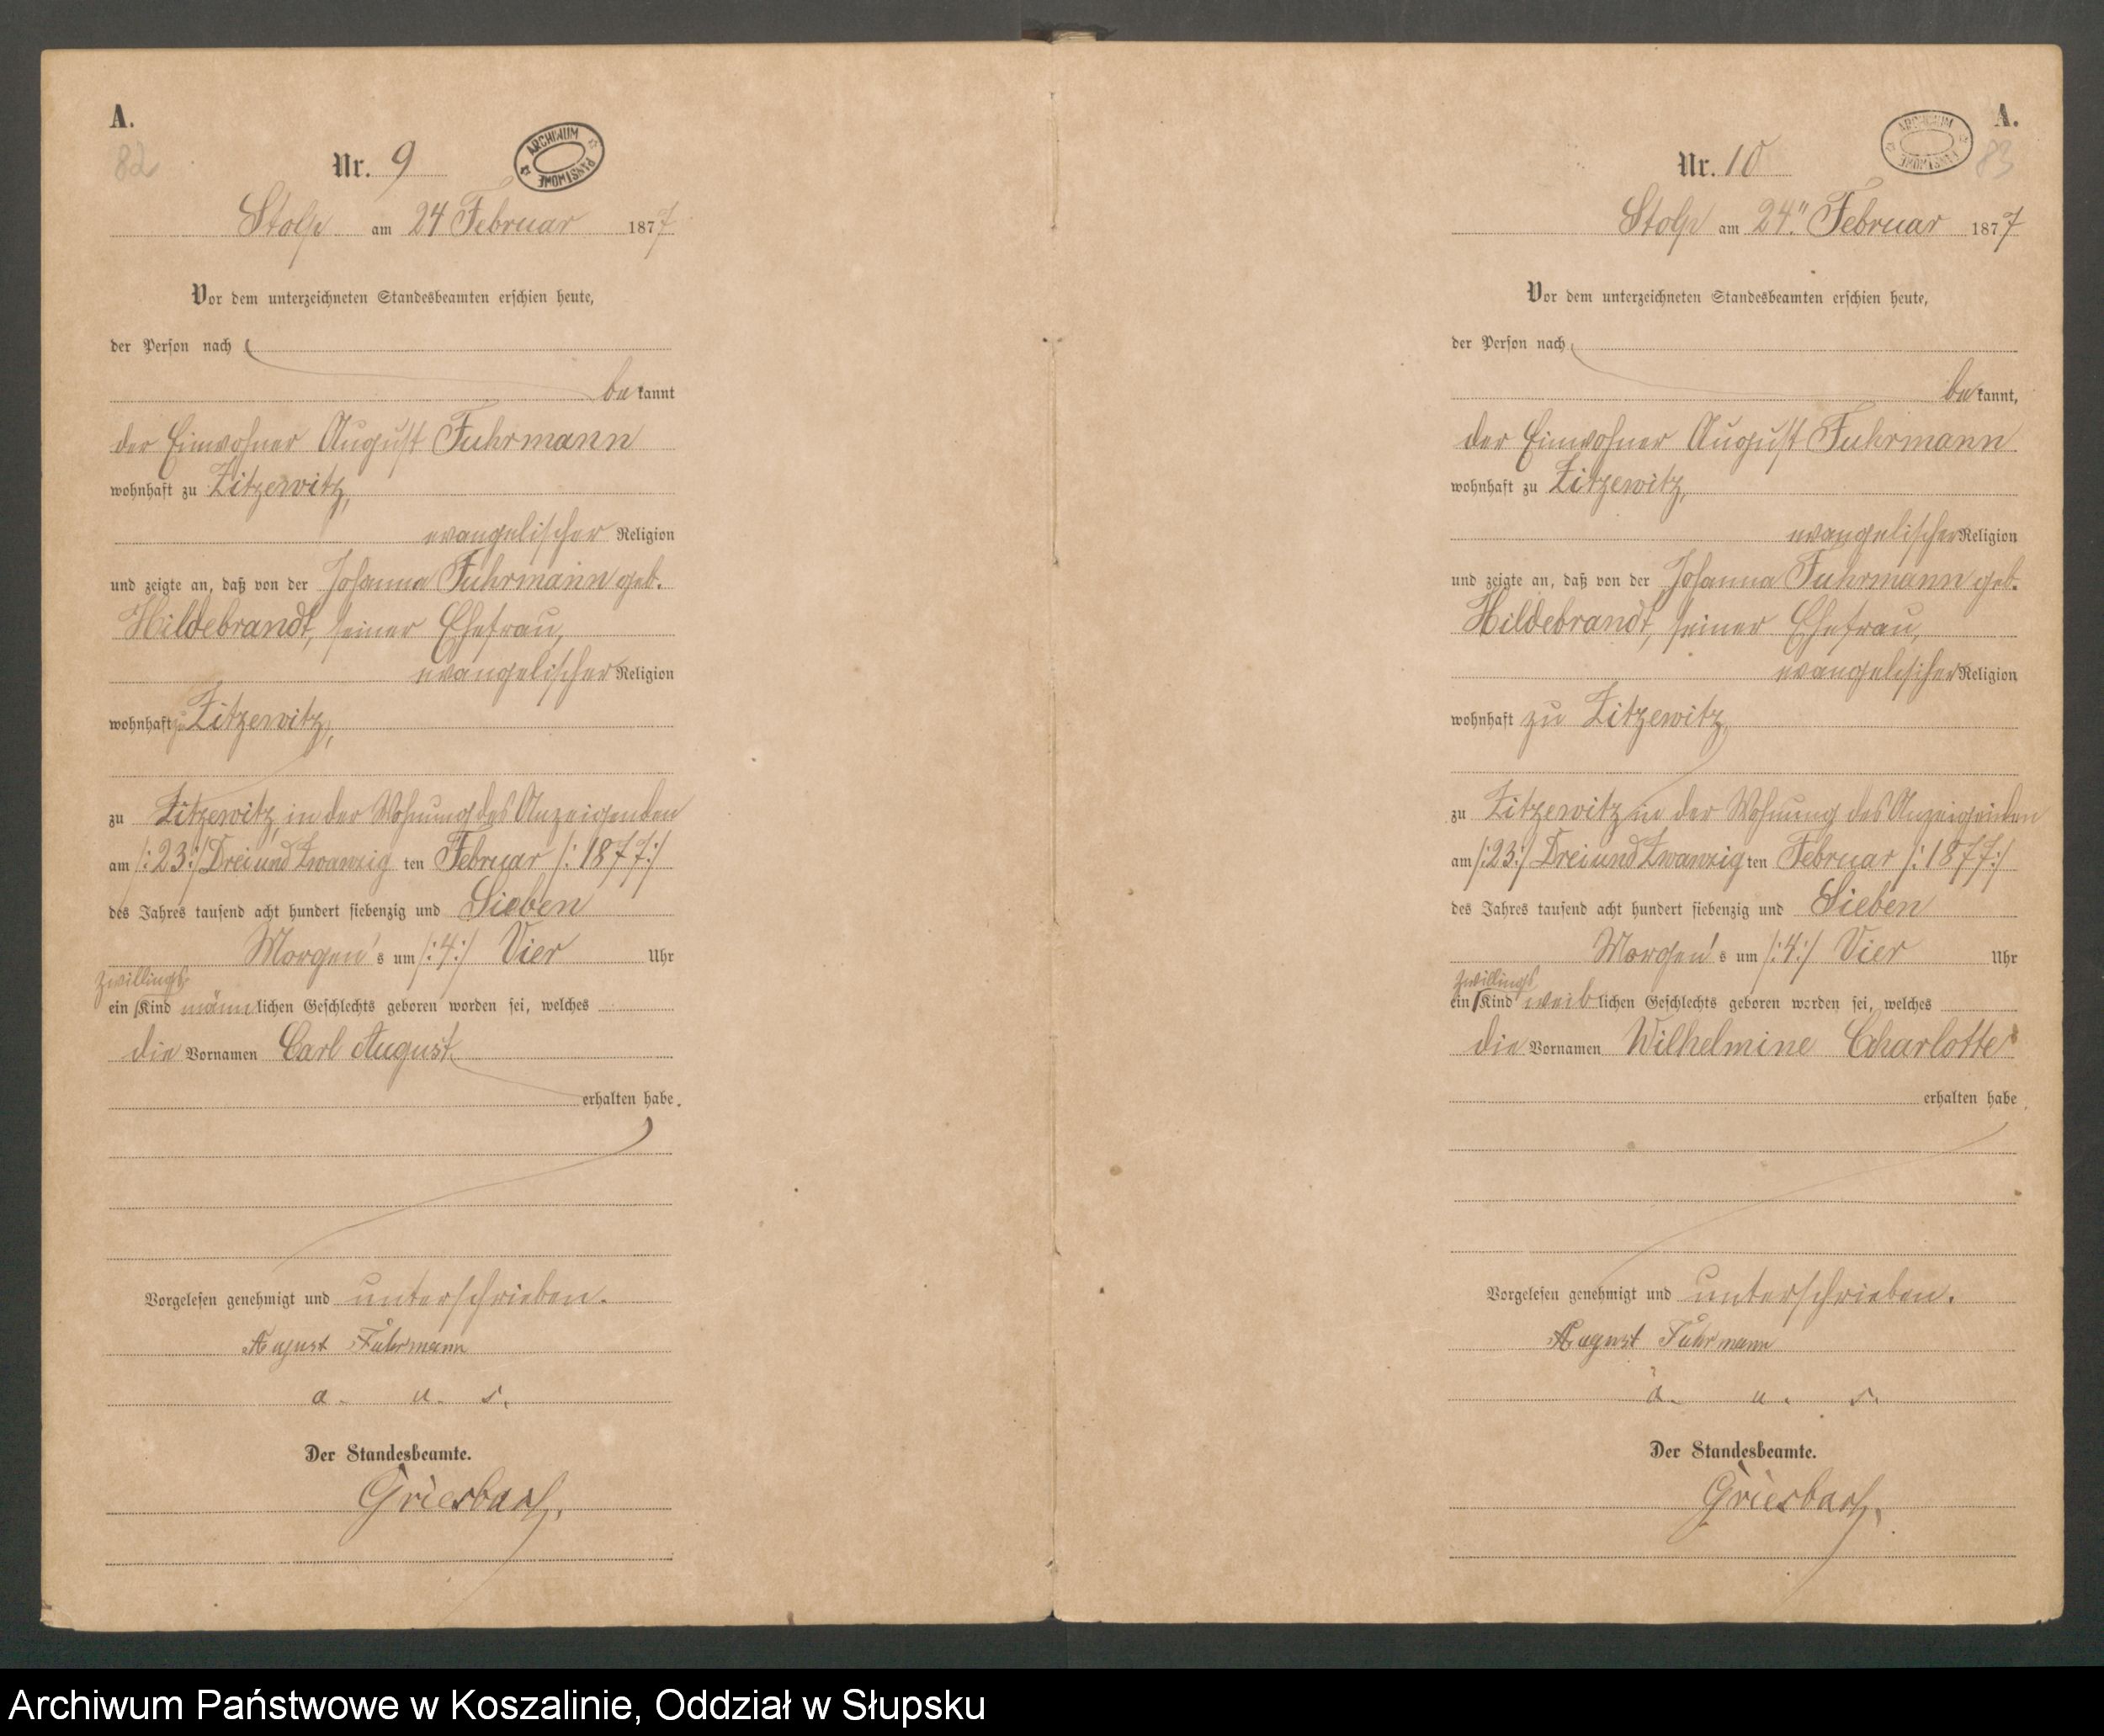 A.
82
Nr. 9
ARCHIWUM PAŃSTWOWE
Stolp am 24 Februar 1877
Vor dem unterzeichneten Standesbeamten erschien heute,
der Person nach
bekannt
der Einwohner August Fuhrmann
wohnhaft zu Zitzewitz,
evangelischer Religion
und zeigte an, daß von der Johanna Fuhrmann geb.
Hildebrandt, seiner Ehefrau,
evangelischer Religion
wohnhaft zu Zitzewitz,
zu Zitzewitz, in der Wohnung des Anzeigenden
am /:23:/ Dreiund Zwanzig ten Februar /:1877:/
des Jahres tausend acht hundert siebenzig und Sieben
Morgen's um /:4:/ Vier Uhr
Zwillings
ein Kind männlichen Geschlechts geboren worden sei, welches
die Vornamen Carl August
erhalten habe.
Vorgelesen genehmigt und unterschrieben.
August Fuhrmann
a. u. s.
Der Standesbeamte.
Griesbach.
A.
83
Nr. 10
ARCHIWUM PAŃSTWOWE
Stolp am 24." Februar 1877
Vor dem unterzeichneten Standesbeamten erschien heute,
der Person nach
bekannt,
der Einwohner August Fuhrmann
wohnhaft zu Zitzewitz,
evangelischer Religion
und zeigte an, daß von der Johanna Fuhrmann geb.
Hildebrandt, seiner Ehefrau,
evangelischer Religion
wohnhaft zu Zitzewitz,
zu Zitzewitz in der Wohnung des Anzeigenden
am /:23:/ Dreiund Zwanzig ten Februar /:1877:/
des Jahres tausend acht hundert siebenzig und Sieben
Morgen's um /:4:/ Vier Uhr
Zwillings
ein Kind weiblichen Geschlechts geboren worden sei, welches
die Vornamen Wilhelmine Charlotte
erhalten habe.
Vorgelesen genehmigt und unterschrieben.
August Fuhrmann
a. u. s.
Der Standesbeamte.
Griesbach.
Archiwum Państwowe w Koszalinie, Oddział w Słupsku